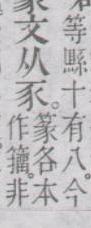 等縣十有八。今
篆文从豕。
篆各本
作籒非